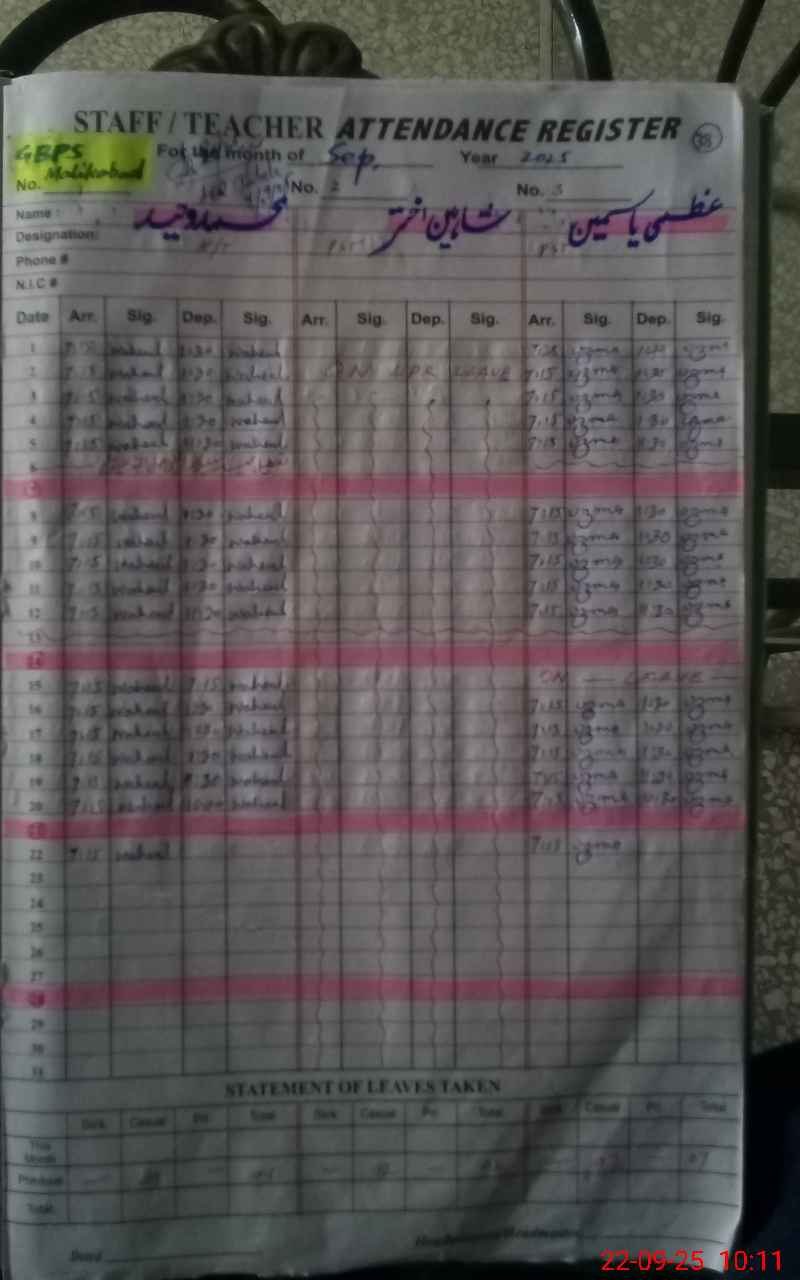 STAFF / TEACHER ATTENDANCE REGISTER 35
GBPS
Malikabad
For the month of Sep. Year 2025
No. No. 2 No. 3
Name : محمد وحید شاہین اختر عظمی یاسمین
Designation: PST PST
Phone #
N.I.C #
Date Arr. Sig. Dep. Sig. Arr. Sig. Dep. Sig. Arr. Sig. Dep. Sig.
1 waheed 1:30 waheed uzma 1:30 uzma
2 7:15 waheed 1:30 waheed ON LEAVE 7:15 uzma 1:30 uzma
3 7:15 waheed 1:30 waheed 7:15 uzma 1:30 uzma
4 7:15 waheed 1:30 waheed 7:15 uzma 1:30 uzma
5 7:15 waheed 11:30 waheed 7:15 uzma 11:30 uzma
6
7
8 7:15 waheed 1:30 waheed 7:15 uzma 1:30 uzma
9 7:15 waheed 1:30 waheed 7:15 uzma 1:30 uzma
10 7:15 waheed 1:30 waheed 7:15 uzma 1:30 uzma
11 7:15 waheed 1:30 waheed 7:15 uzma 1:30 uzma
12 7:15 waheed 11:30 waheed 7:15 uzma 11:30 uzma
13
14
15 7:15 waheed 7:15 waheed ON LEAVE
16 7:15 waheed 1:30 waheed 7:15 uzma 1:30 uzma
17 7:15 waheed 1:30 waheed 7:15 uzma 1:30 uzma
18 7:15 waheed 1:30 waheed 7:15 uzma 1:30 uzma
19 7:15 waheed 11:30 waheed 7:15 uzma 11:30 uzma
20 7:15 waheed waheed 7:15 uzma 11:30 uzma
21
22 7:15 waheed 7:15 uzma
23
24
25
26
27
28
29
30
31
STATEMENT OF LEAVES TAKEN
Sick Casual Pri Total Sick Casual Pri Total Sick Casual Pri Total
This Month
Previous
Total
Dated
22-09-25 10:11